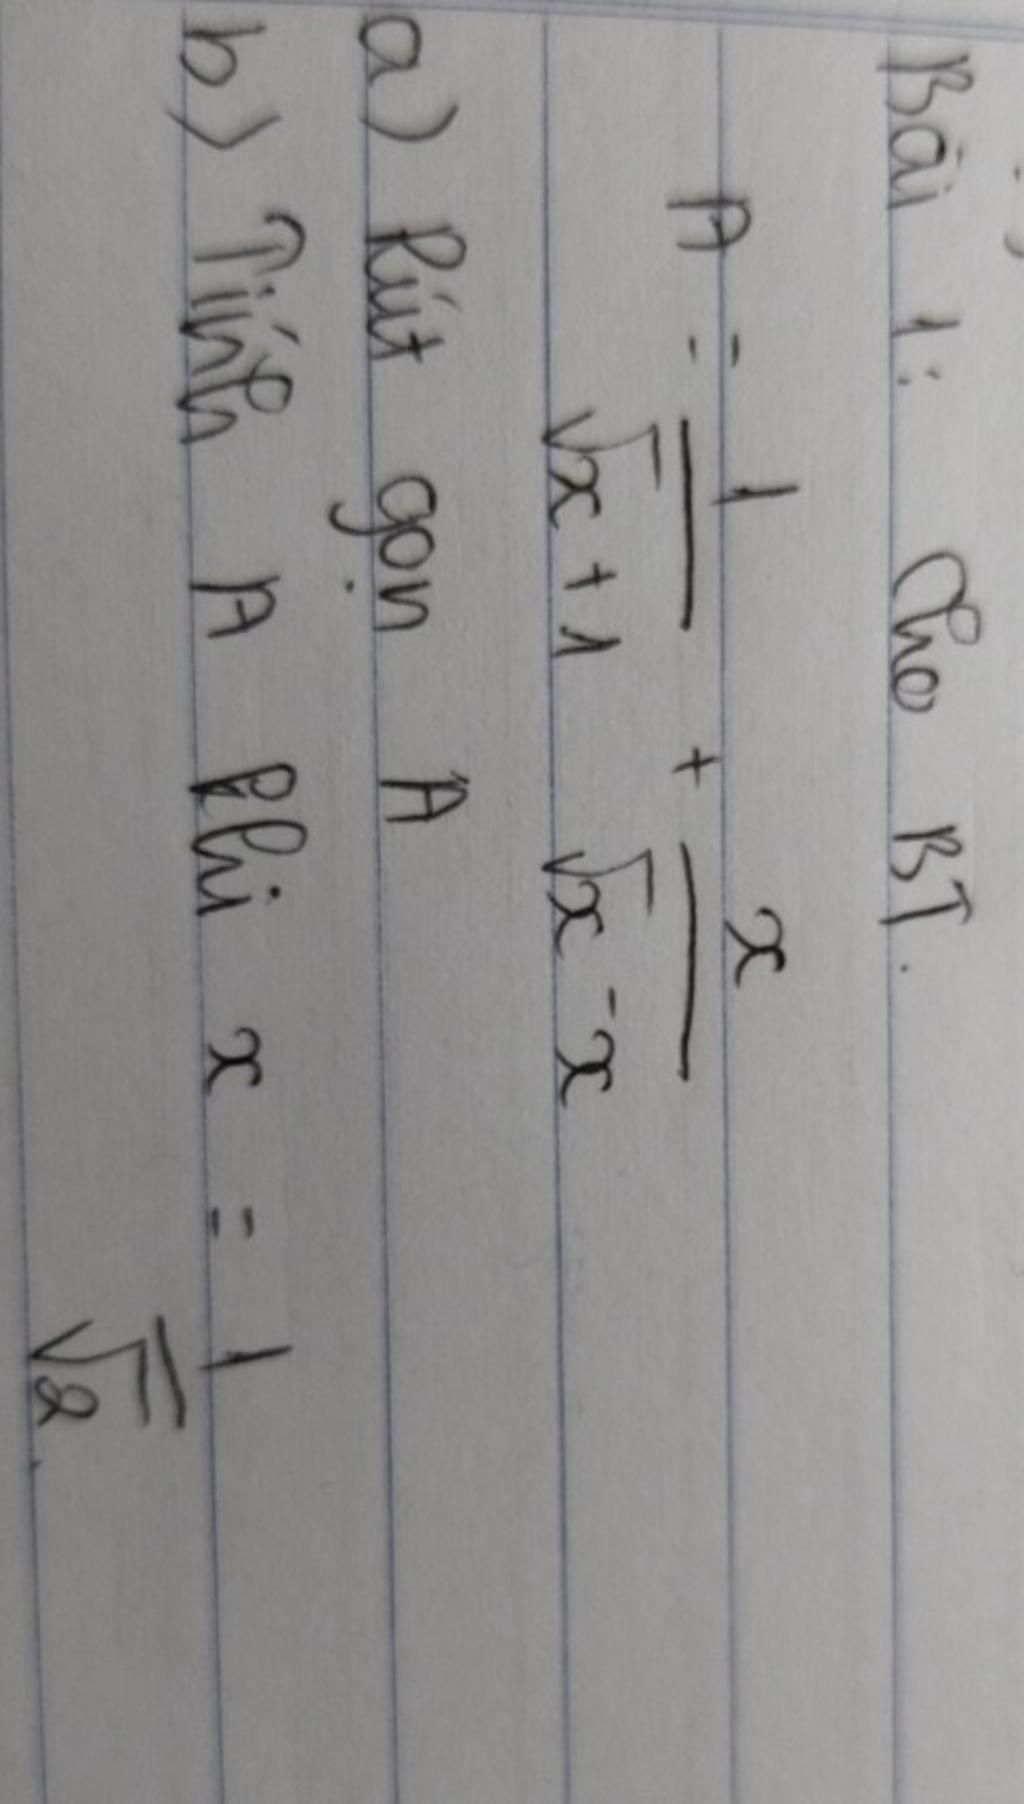 Bài 1: Cho BT.
A = 1/(√x + 1) + x/(√x - x)
a) Rút gọn A
b) Tính A khi x = 1/√2.